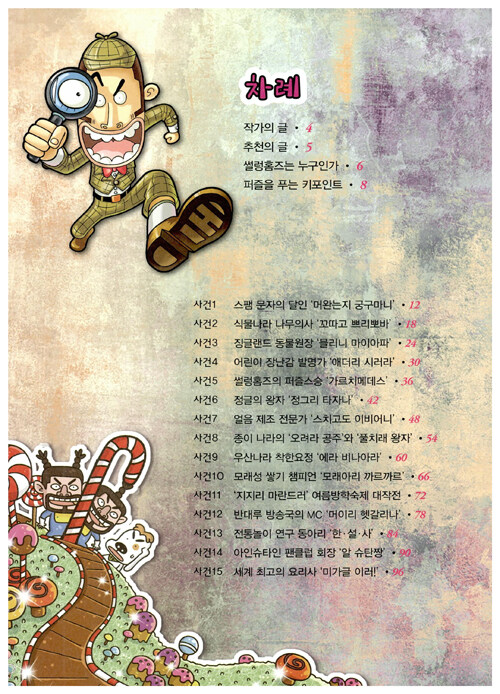 차례
작가의 글 • 4
추천의 글 • 5
썰렁홈즈는 누구인가 • 6
퍼즐을 푸는 키포인트 • 8
사건1 스팸 문자의 달인 '머완는지 궁구마니' • 12
사건2 식물나라 나무의사 '꼬따고 쁘리뽀바' • 18
사건3 징글랜드 동물원장 '믈리니 마이아파' • 24
사건4 어린이 장난감 발명가 '애더리 시러라' • 30
사건5 썰렁홈즈의 퍼즐스승 '가르치메데스' • 36
사건6 정글의 왕자 '정그리 타자나' • 42
사건7 얼음 제조 전문가 '스치고도 이비어니' • 48
사건8 종이 나라의 '오려라 공주'와 '풀치래 왕자' • 54
사건9 우산나라 착한요정 '에라 비나아라' • 60
사건10 모래성 쌓기 챔피언 '모래아리 까르까르' • 66
사건11 '지지리 마란드러' 여름방학숙제 대작전 • 72
사건12 반대루 방송국의 MC '머이리 헷갈리나' • 78
사건13 전통놀이 연구 동아리 '한·설·사' • 84
사건14 아인슈타인 팬클럽 회장 '알 슈탄짱' • 90
사건15 세계 최고의 요리사 '미가글 이러!' • 96